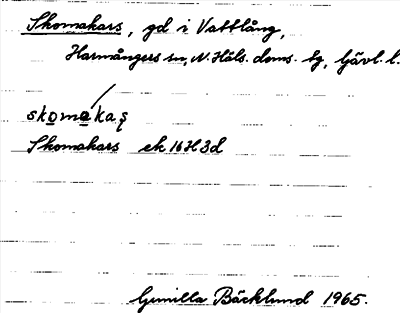 Skomakars, gd i Vattlång,
Harmångers sn, N. Häls. doms. bg, Gävl. l.
skomakaş
Skomakars ek 16H3d
Gunilla Bäcklund 1965.